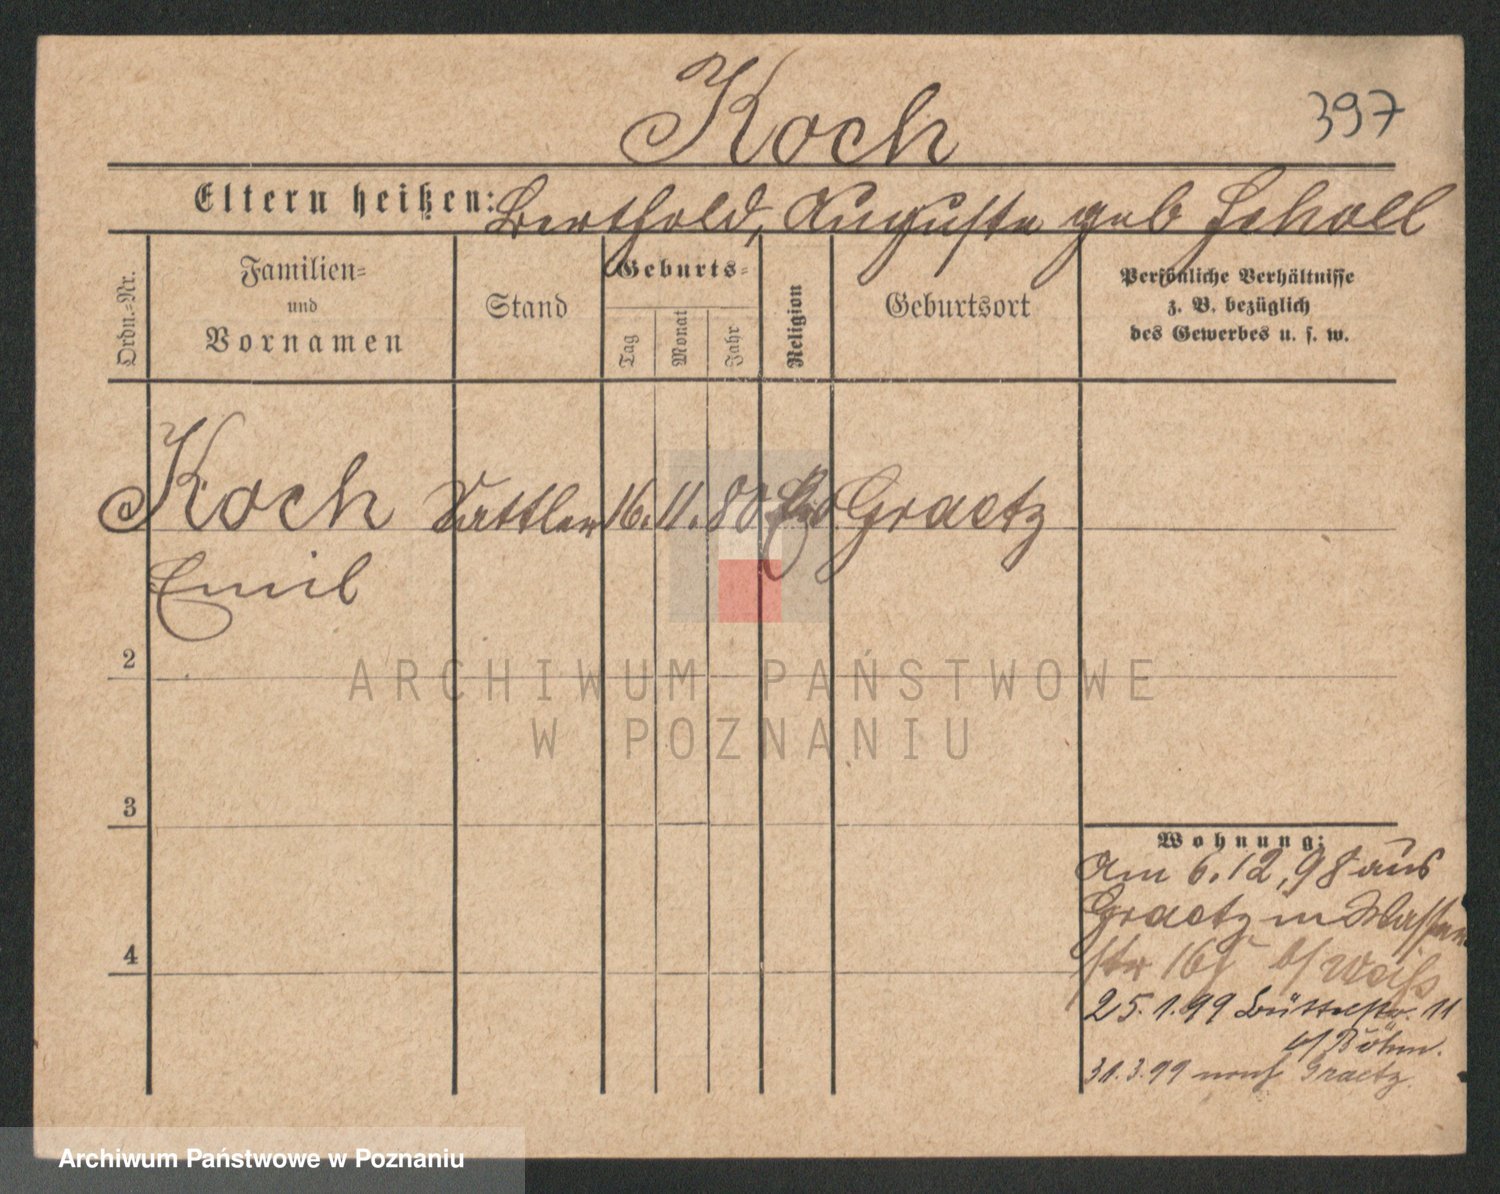 Koch
397
Eltern heißen: Berthold, Auguste geb Scholl
Ordn.-Nr.
Familien-
und
Vornamen
Stand
Geburts-
Tag
Monat
Jahr
Religion
Geburtsort
Persönliche Verhältnisse
z. B. bezüglich
des Gewerbes u. s. w.
Koch Sattler 16. 11. 80 Graetz
Emil
2
3
4
ARCHIWUM PAŃSTWOWE
W POZNANIU
Wohnung:
Am 6.12,98 aus
Graetz in Wasser
str b/ Weiss
25.1.99 Büttelstr. 11
b/ Böhm.
31.3.99 nach Graetz.
Archiwum Państwowe w Poznaniu